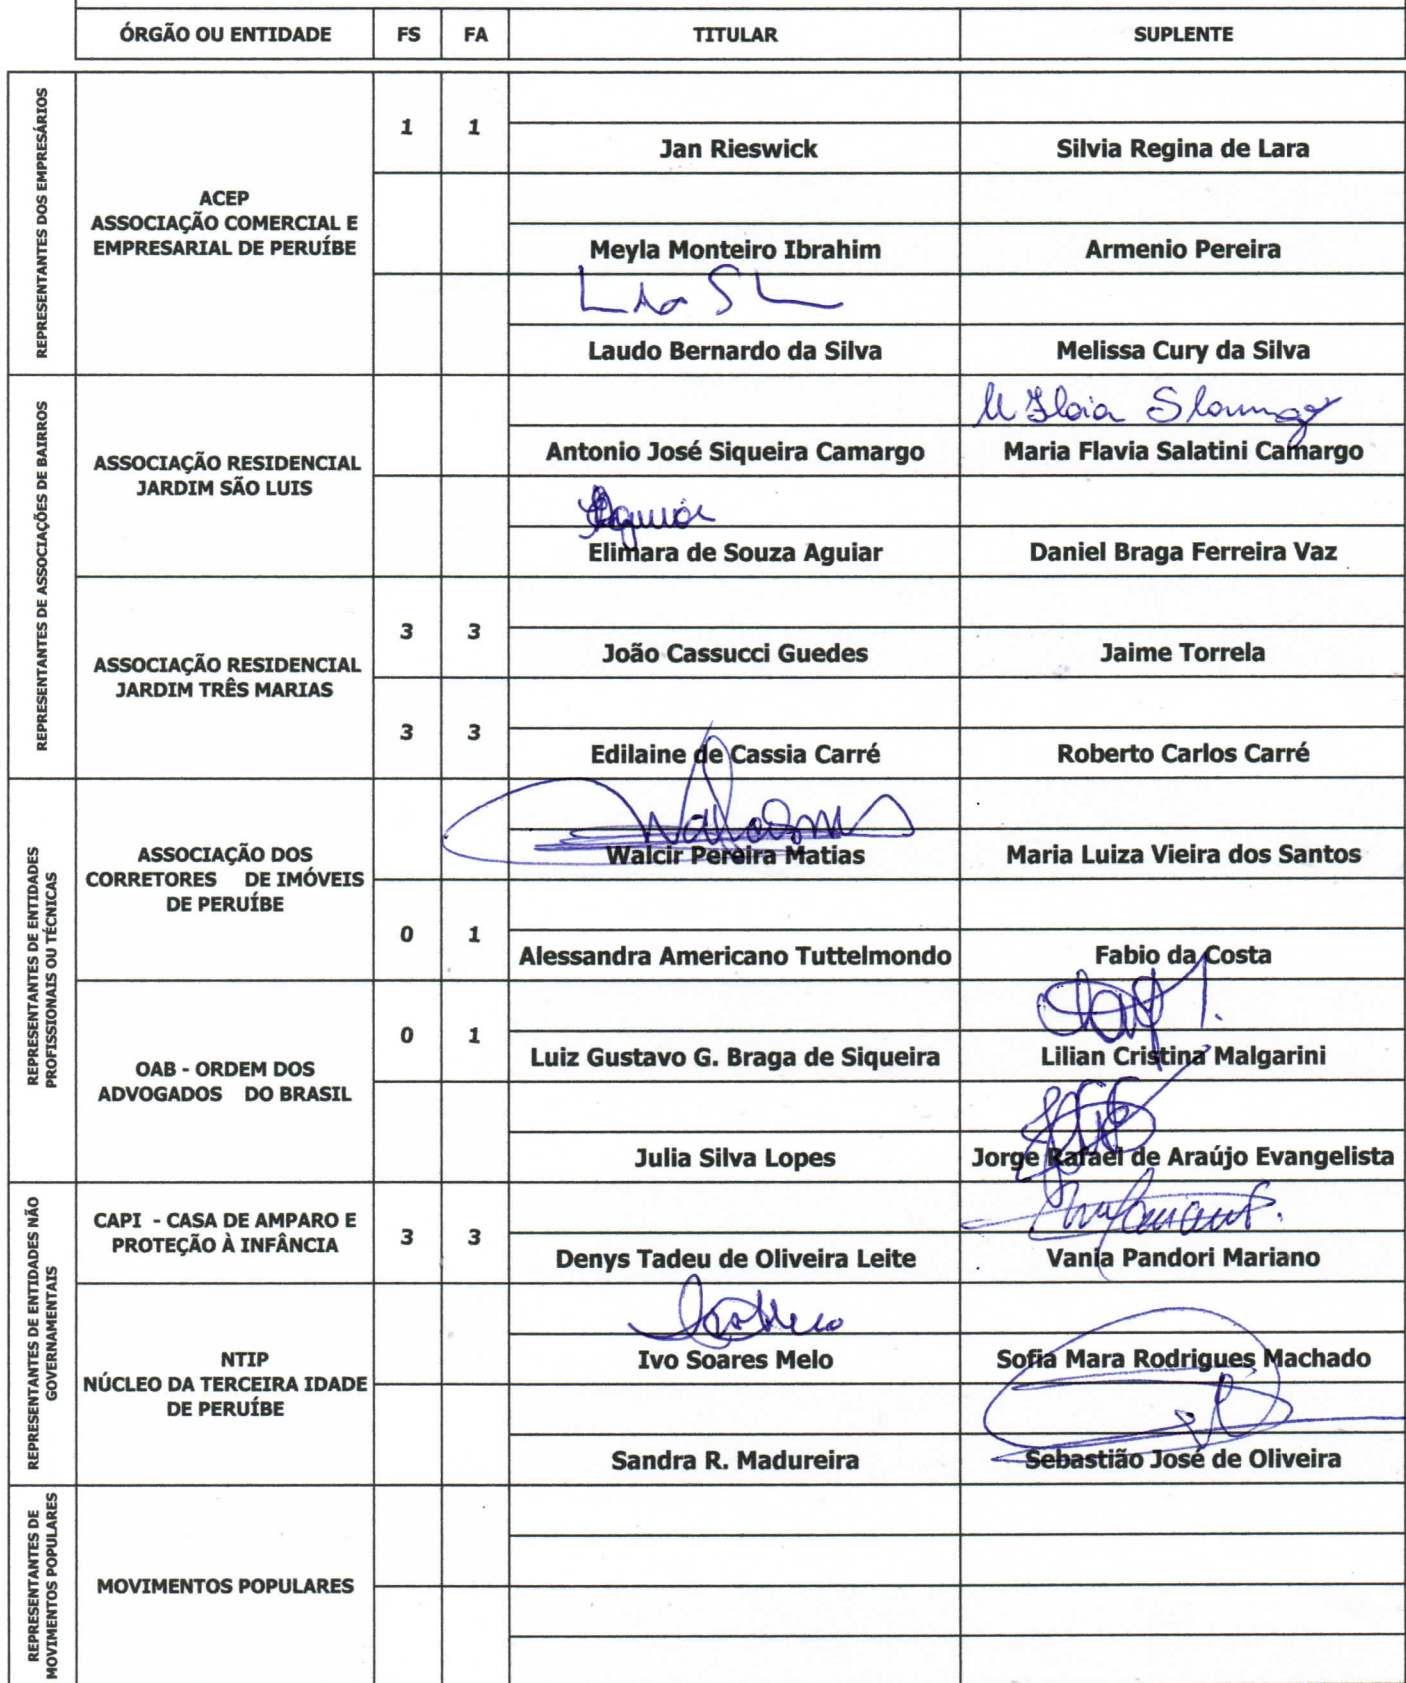 ÓRGÃO OU ENTIDADE FS FA TITULAR SUPLENTE
REPRESENTANTES DOS EMPRESÁRIOS
ACEP
ASSOCIAÇÃO COMERCIAL E
EMPRESARIAL DE PERUÍBE
1 1
Jan Rieswick Silvia Regina de Lara
Meyla Monteiro Ibrahim Armenio Pereira
Laudo Bernardo da Silva Melissa Cury da Silva
REPRESENTANTES DE ASSOCIAÇÕES DE BAIRROS
ASSOCIAÇÃO RESIDENCIAL
JARDIM SÃO LUIS
Antonio José Siqueira Camargo Maria Flavia Salatini Camargo
Aguiar
Elimara de Souza Aguiar Daniel Braga Ferreira Vaz
ASSOCIAÇÃO RESIDENCIAL
JARDIM TRÊS MARIAS
3 3
João Cassucci Guedes Jaime Torrela
3 3
Edilaine de Cassia Carré Roberto Carlos Carré
REPRESENTANTES DE ENTIDADES
PROFISSIONAIS OU TÉCNICAS
ASSOCIAÇÃO DOS
CORRETORES DE IMÓVEIS
DE PERUÍBE
Walcir Pereira Matias Maria Luiza Vieira dos Santos
0 1
Alessandra Americano Tuttelmondo Fabio da Costa
OAB - ORDEM DOS
ADVOGADOS DO BRASIL
0 1
Luiz Gustavo G. Braga de Siqueira Lilian Cristina Malgarini
Julia Silva Lopes Jorge Rafael de Araújo Evangelista
REPRESENTANTES DE ENTIDADES NÃO
GOVERNAMENTAIS
CAPI - CASA DE AMPARO E
PROTEÇÃO À INFÂNCIA
3 3
Denys Tadeu de Oliveira Leite Vania Pandori Mariano
NTIP
NÚCLEO DA TERCEIRA IDADE
DE PERUÍBE
Ivo Soares Melo Sofia Mara Rodrigues Machado
Sandra R. Madureira Sebastião José de Oliveira
REPRESENTANTES DE
MOVIMENTOS POPULARES
MOVIMENTOS POPULARES